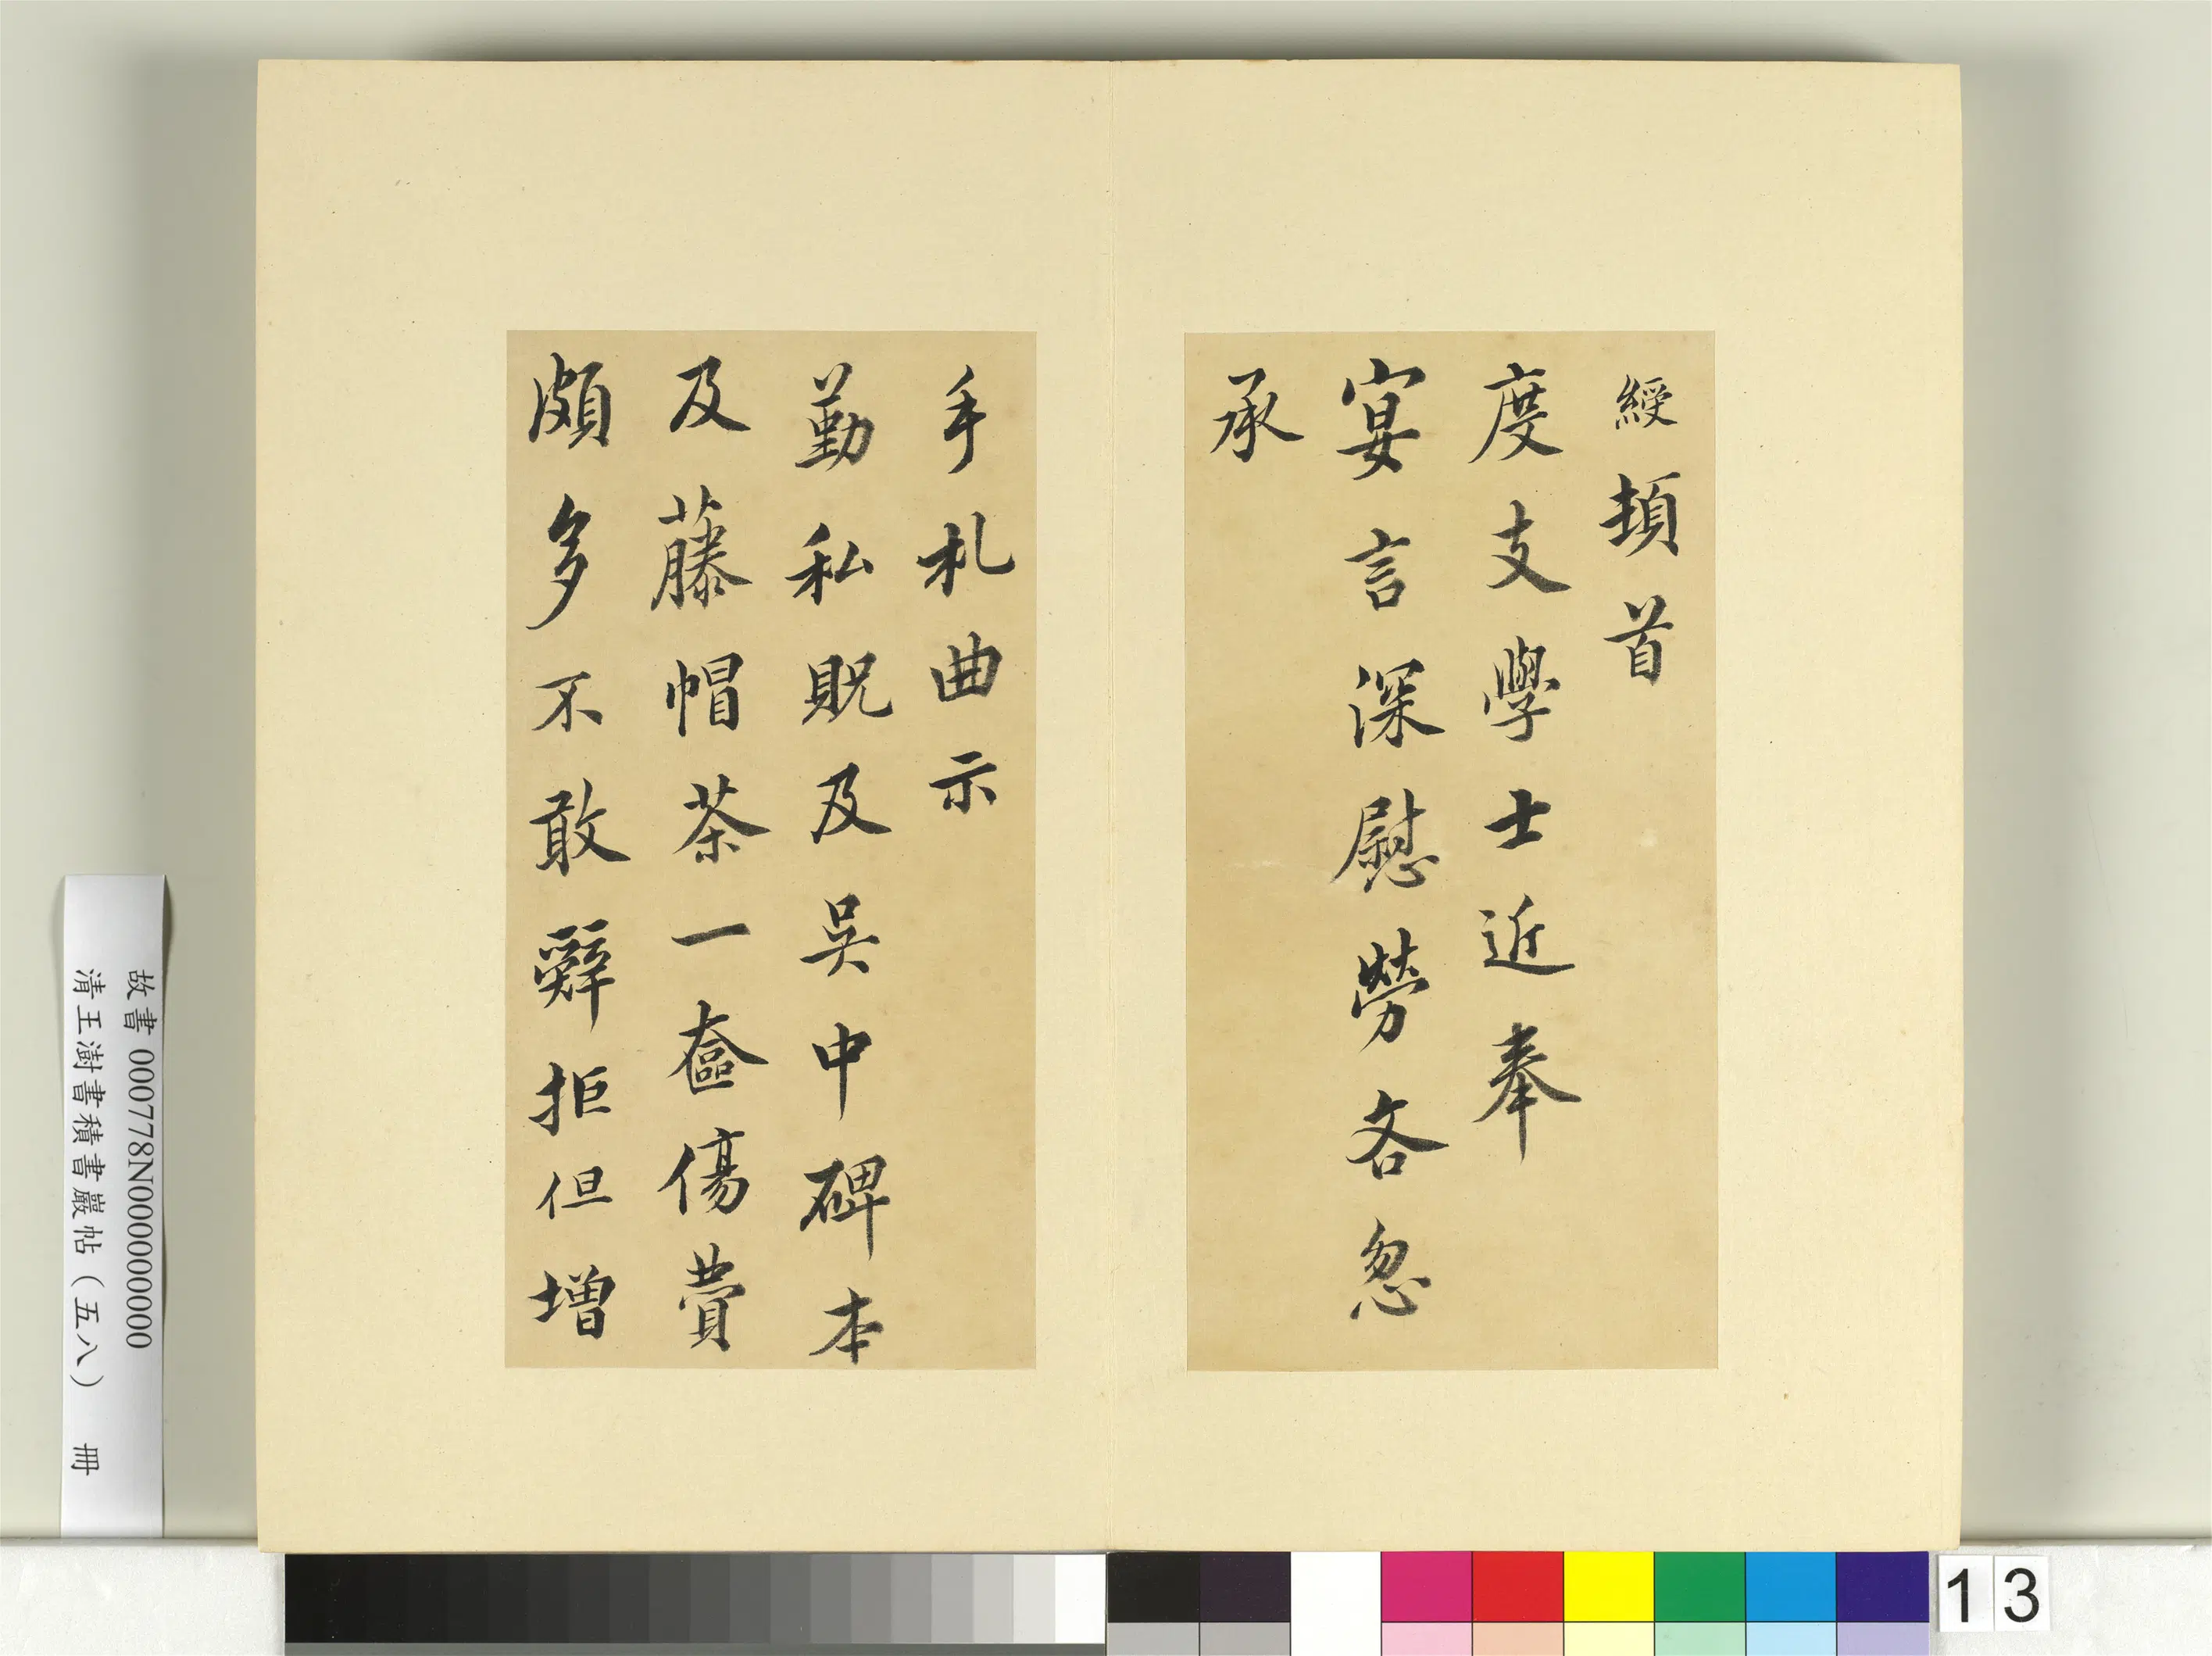 綬頓首
度支學士近奉
宴言深慰勞吝忽
承
手札曲示
勤私貺及吳中碑本
及藤帽茶一奩傷費
頗多不敢辭拒但增
故書 000778N000000000
清王澍書積書巖帖（五八） 冊
13